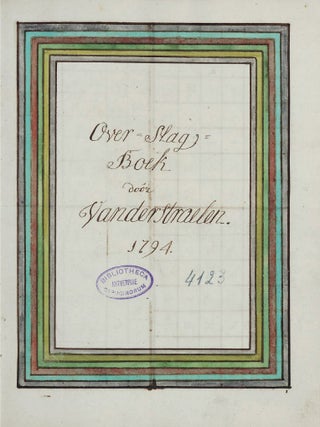 Over=Slag=
Boek
door
Vanderstraelen.
1794.
BIBLIOTHECA
4123